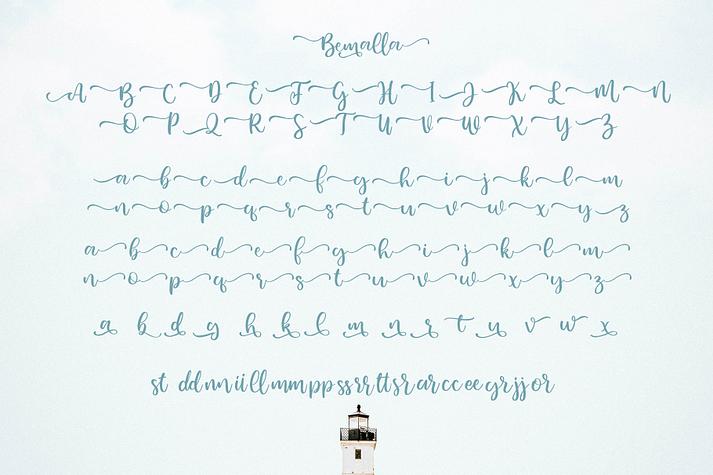 Bemalla
A B C D E F G H I J K L M N
O P Q R S T U V W X Y Z
a b c d e f g h i j k l m
n o p q r s t u v w x y z
a b c d e f g h i j k l m
n o p q r s t u v w x y z
a b d g h k l m n r t u v w x
st dd nn ii ll mm pp ss rr tt sr ar cc ee gr jj or